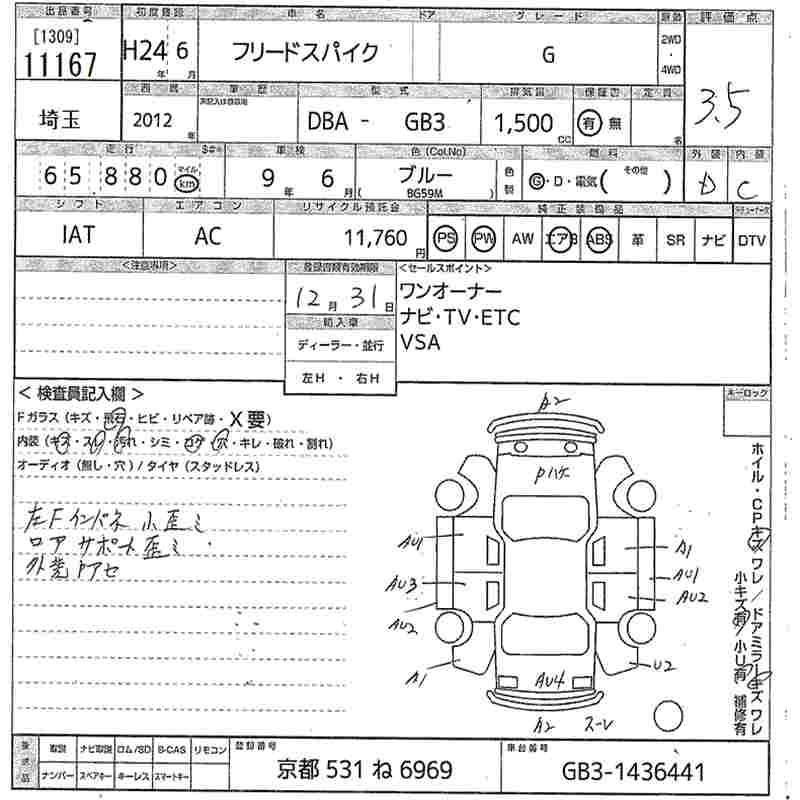 出品番号 初度登録 車名 ドア グレード 駆動 評価点
[1309] 11167 H24 6 年 月 フリードスパイク G 2WD・4WD 3.5
埼玉
西暦 車歴 型式 排気量 保証書 定員
2012 年 DBA - GB3 1,500 CC 有 無 名
走行 車検 色(Col.No) 燃料 外装 内装
65880 マイル km 9年 6月 ブルー BG59M 色替 G・D・電気( その他 ) D C
シフト エアコン リサイクル預託金 純正装備品
IAT AC 11,760円 PS PW AW エアB ABS 革 SR ナビ DTV
<注意事項> 登録書類有効期限 <セールスポイント>
12月31日 ワンオーナー
ナビ・TV・ETC
輸入車 VSA
ディーラー・並行
左H ・ 右H
< 検査員記入欄 > キーロック
Fガラス (キズ・飛石・ヒビ・リペア跡・X要)
内装 (キズ・スレ・汚れ・シミ・コゲ・穴・キレ・破れ・割れ)
オーディオ (無し・穴) / タイヤ (スタッドレス)
左Fインパネ 小歪ミ
ロアサポート歪ミ
A2
Pハゲ
AU1 A1
AU3 AU1
AU2 AU2
A1 AU4 U2
A2 スーレ
ホイル・CPキズワレ/ドアミラーキズワレ
小キズ有/小U有 補修有
後送品 取説 ナビ取説 ロム/SD B-CAS リモコン
ナンバー スペアキー キーレス スマートキー
登録番号 京都 531 ね 6969
車台番号 GB3-1436441